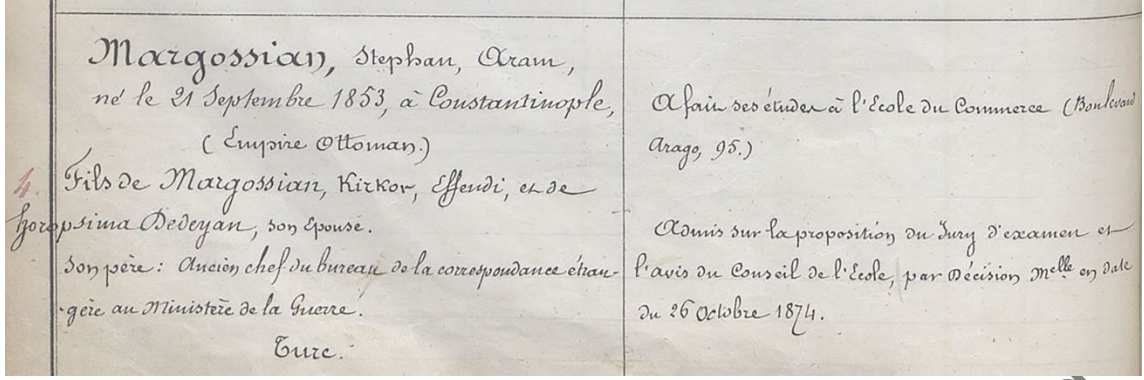 Margossian, Stephan, Aram,
né le 21 Septembre 1853, à Constantinople,
( Empire Ottoman.)
4. Fils de Margossian, Kirkor, Effendi, et de
horopsima Dedeyan, son Epouse.
Son père : Ancien chef du bureau de la correspondance étran-
-gère au Ministère de la Guerre.
Turc.
A fait ses études à l'Ecole du Commerce (Boulevard
Arago, 95.)
Admis sur la proposition du Jury d'examen et
l'avis du Conseil de l'Ecole, par Décision Melle en date
du 26 Octobre 1874.